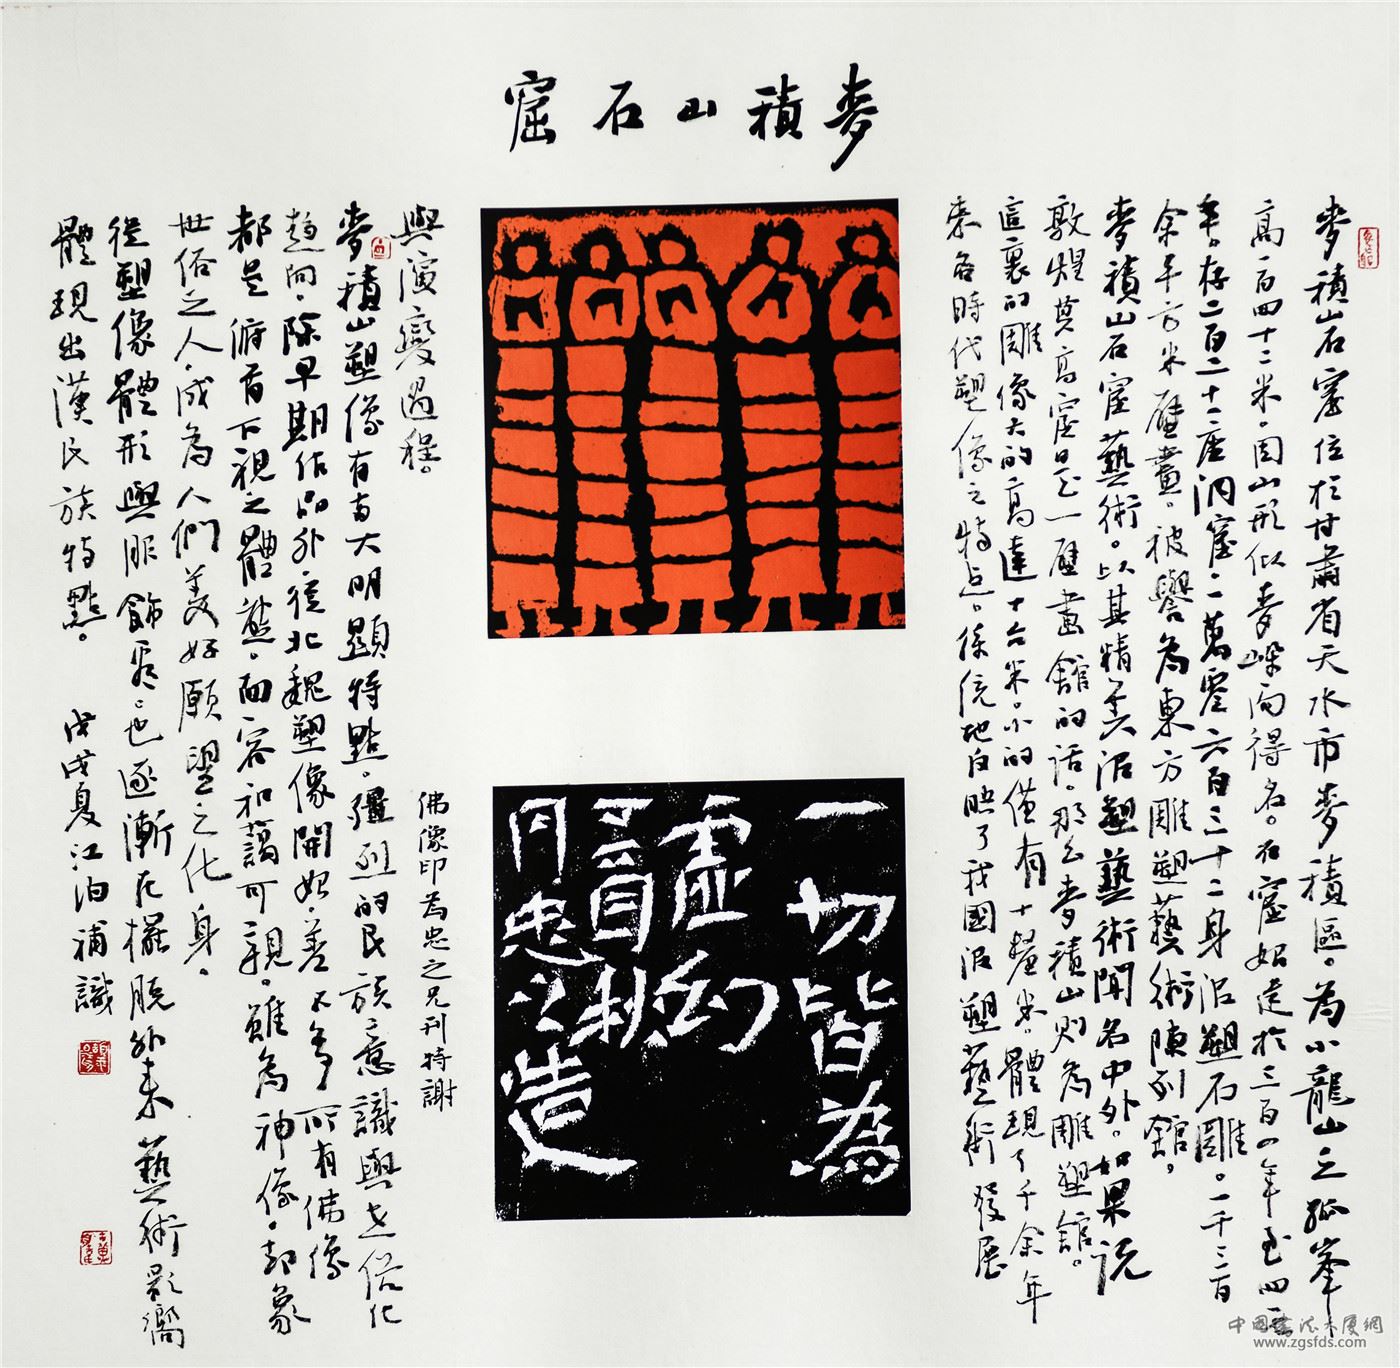 麥積山石窟
麥積山石窟位於甘肅省天水市麥積區。為小龍山之孤峯
高一百四十二米。因山形似麥垛而得名。石窟始建於三百八四年至四一七
年。存二百二十二座洞窟。一萬零六百三十二身泥塑石雕。一千三百
余平方米壁畫。被譽為東方雕塑藝術陳列館。
麥積山石窟藝術。以其精美泥塑藝術聞名中外。如果説
敦煌莫高窟是一壁畫館的話。那么麥積山則為雕塑館。
這裏的雕像大的高達十六米。小的僅有十釐米。體現了千余年
來各時代塑像之特点。係統地反映了我國泥塑藝術發展
與演變過程。
麥積山塑像有両大明顯特點。彊烈的民族意識與世俗化
趨向。除早期作品外從北魏塑像開始。差不多所有佛像
都是俯首下視之體態。面容和藹可親。雖為神像。却象
世俗之人。成為人們美好願望之化身。
從塑像體形與服飾看。也逐漸在擺脱外来藝術影響
體現出漢民族特點。
戊戌夏江泊補識
佛像印為忠之兄刊特謝
一切皆為
虛幻
丁酉秋
月忠之造
中國書法大厦網
www.zgsfds.com